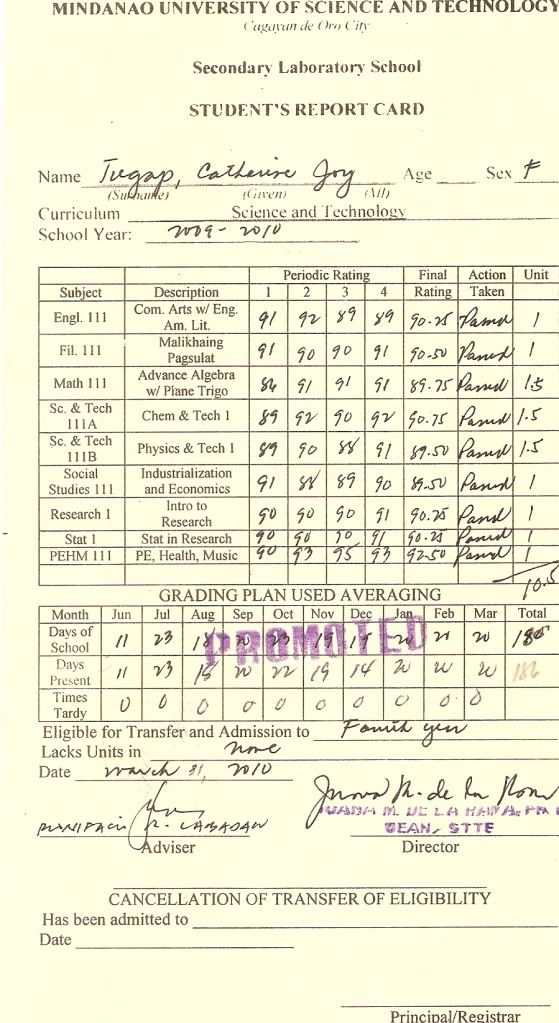 MINDANAO UNIVERSITY OF SCIENCE AND TECHNOLOGY
Cagayan de Oro City
Secondary Laboratory School
STUDENT'S REPORT CARD
Name Tugap, Catherine Joy Age Sex F
(Surname) (Given) (MI)
Curriculum Science and Technology
School Year: 2009-2010
Periodic Rating Final Action Unit
Subject Description 1 2 3 4 Rating Taken
Engl. 111 Com. Arts w/ Eng. Am. Lit. 91 92 89 89 90.25 Passed 1
Fil. 111 Malikhaing Pagsulat 91 90 90 91 90.50 Passed 1
Math 111 Advance Algebra w/ Plane Trigo 86 91 91 91 89.75 Passed 1.5
Sc. & Tech 111A Chem & Tech 1 89 92 90 92 90.75 Passed 1.5
Sc. & Tech 111B Physics & Tech 1 89 90 88 91 89.50 Passed 1.5
Social Studies 111 Industrialization and Economics 91 88 89 90 89.50 Passed 1
Research 1 Intro to Research 90 90 90 91 90.25 Passed 1
Stat 1 Stat in Research 90 90 90 91 90.25 Passed 1
PEHM 111 PE, Health, Music 90 93 95 93 92.50 Passed 1
10.5
GRADING PLAN USED AVERAGING
Month Jun Jul Aug Sep Oct Nov Dec Jan Feb Mar Total
PROMOTED
Days of School 11 23 18 20 23 19 20 21 20
Days Present 11 23 18 20 22 19 14 20 20 20 186
Times Tardy 0 0 0 0 0 0 0 0 0 0
Eligible for Transfer and Admission to Fourth year
Lacks Units in none
Date March 31, 2010
JUANA M. DE LA RAMA, PH
DEAN, STTE
Adviser Director
CANCELLATION OF TRANSFER OF ELIGIBILITY
Has been admitted to
Date
Principal/Registrar